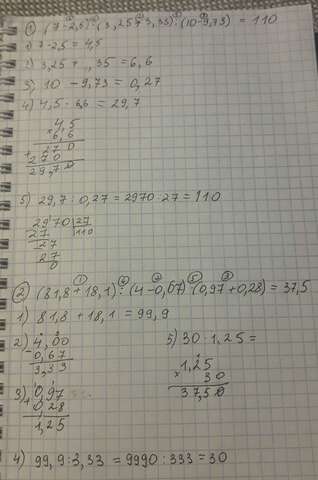 ① (7-2,5)·(3,25+3,35):(10-9,73) = 110
1) 7-2,5 = 4,5
2) 3,25 + ,35 = 6,6
3) 10 - 9,73 = 0,27
4) 4,5 · 6,6 = 29,7
45
× 6,6
270
+ 270
29,70
5) 29,7 : 0,27 = 2970 : 27 = 110
2970 27
27 110
27
27
0
② (81,8+18,1):(4-0,67)·(0,97+0,28) = 37,5
1) 81,8 + 18,1 = 99,9
2) 4,00
- 0,67
3,33
3) 0,97
+ 0,28
1,25
5) 30 · 1,25 =
1,25
× 30
37,50
4) 99,9 : 3,33 = 9990 : 333 = 30